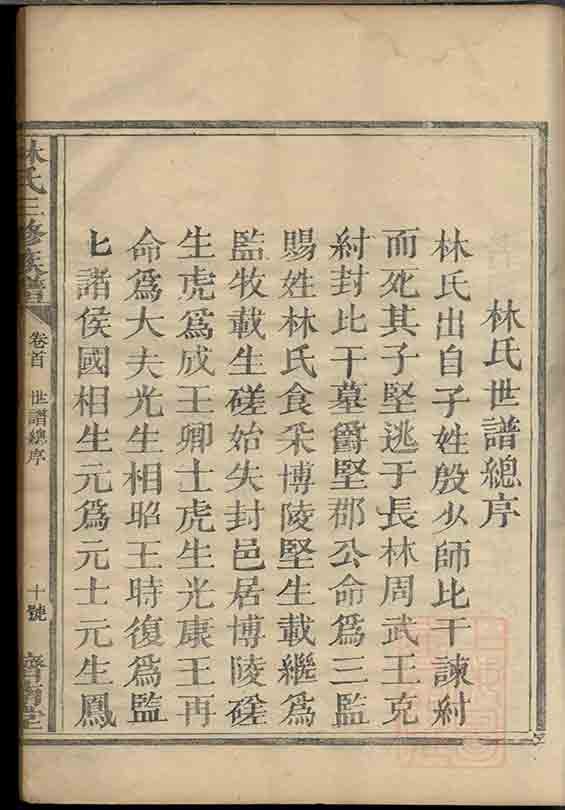 林氏世譜總序
林氏出自子姓殷少師比干諫紂
而死其子堅逃于長林周武王克
紂封比干墓爵堅郡公命爲三監
賜姓林氏食采博陵堅生載繼爲
監牧載生磋始失封邑居博陵磋
生虎爲成王卿士虎生光康王再
命爲大夫光生相昭王時復爲監
七諸侯國相生元爲元士元生鳳
林氏三修族譜
卷首
世譜總序
十號